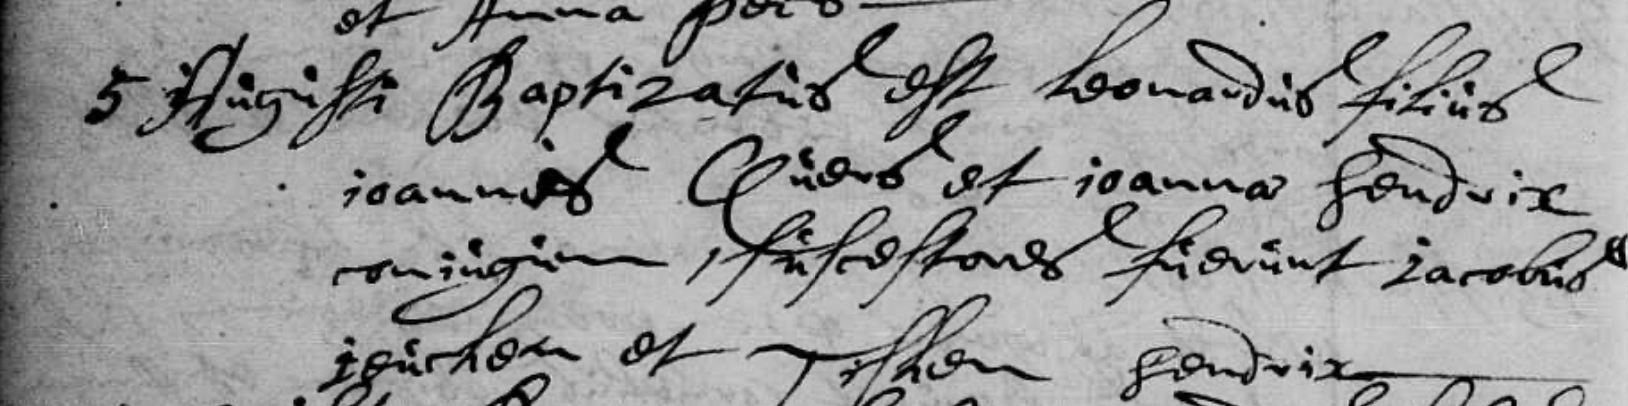 et Anna peis
5 Augusti Baptizatus est Leonardus filius
ioannis Quers et ioanna hendrix
coniugum, susceptores fuerunt jacobus
et hendrix